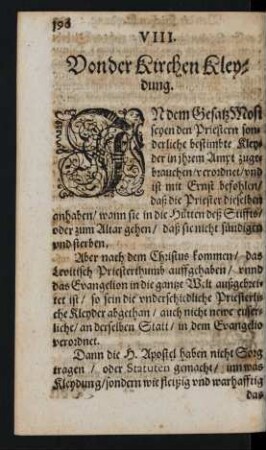 198
VIII.
Von der Kirchen Kley-
dung.
IN dem Gesatz Mosi
seyen den Priestern son-
derliche bestimbte Kley-
der in jhrem Ampt zuge-
brauchen/ verordnet/ vnd
ist mit Ernst befohlen/
daß die Priester dieselben
anhaben/ wann sie in die Hütten deß Stiffts/
oder zum Altar gehen/ daß sie nicht sündigen
vnd sterben.
Aber nach dem Christus kommen/ das
Levitisch Priesterthumb auffgehaben/ vnnd
das Evangelion in die gantze Welt außgebrei-
tet ist/ so sein die vnderschidliche Priesterli-
che Kleyder abgethan/ auch nicht newe eusser-
liche/ an derselben Statt/ in dem Evangelio
verordnet.
Dann die H. Apostel haben nicht Sorg
tragen/ oder Statuten gemacht/ um was
Kleydung/ sondern wie fleissig vnd warhafftig
das